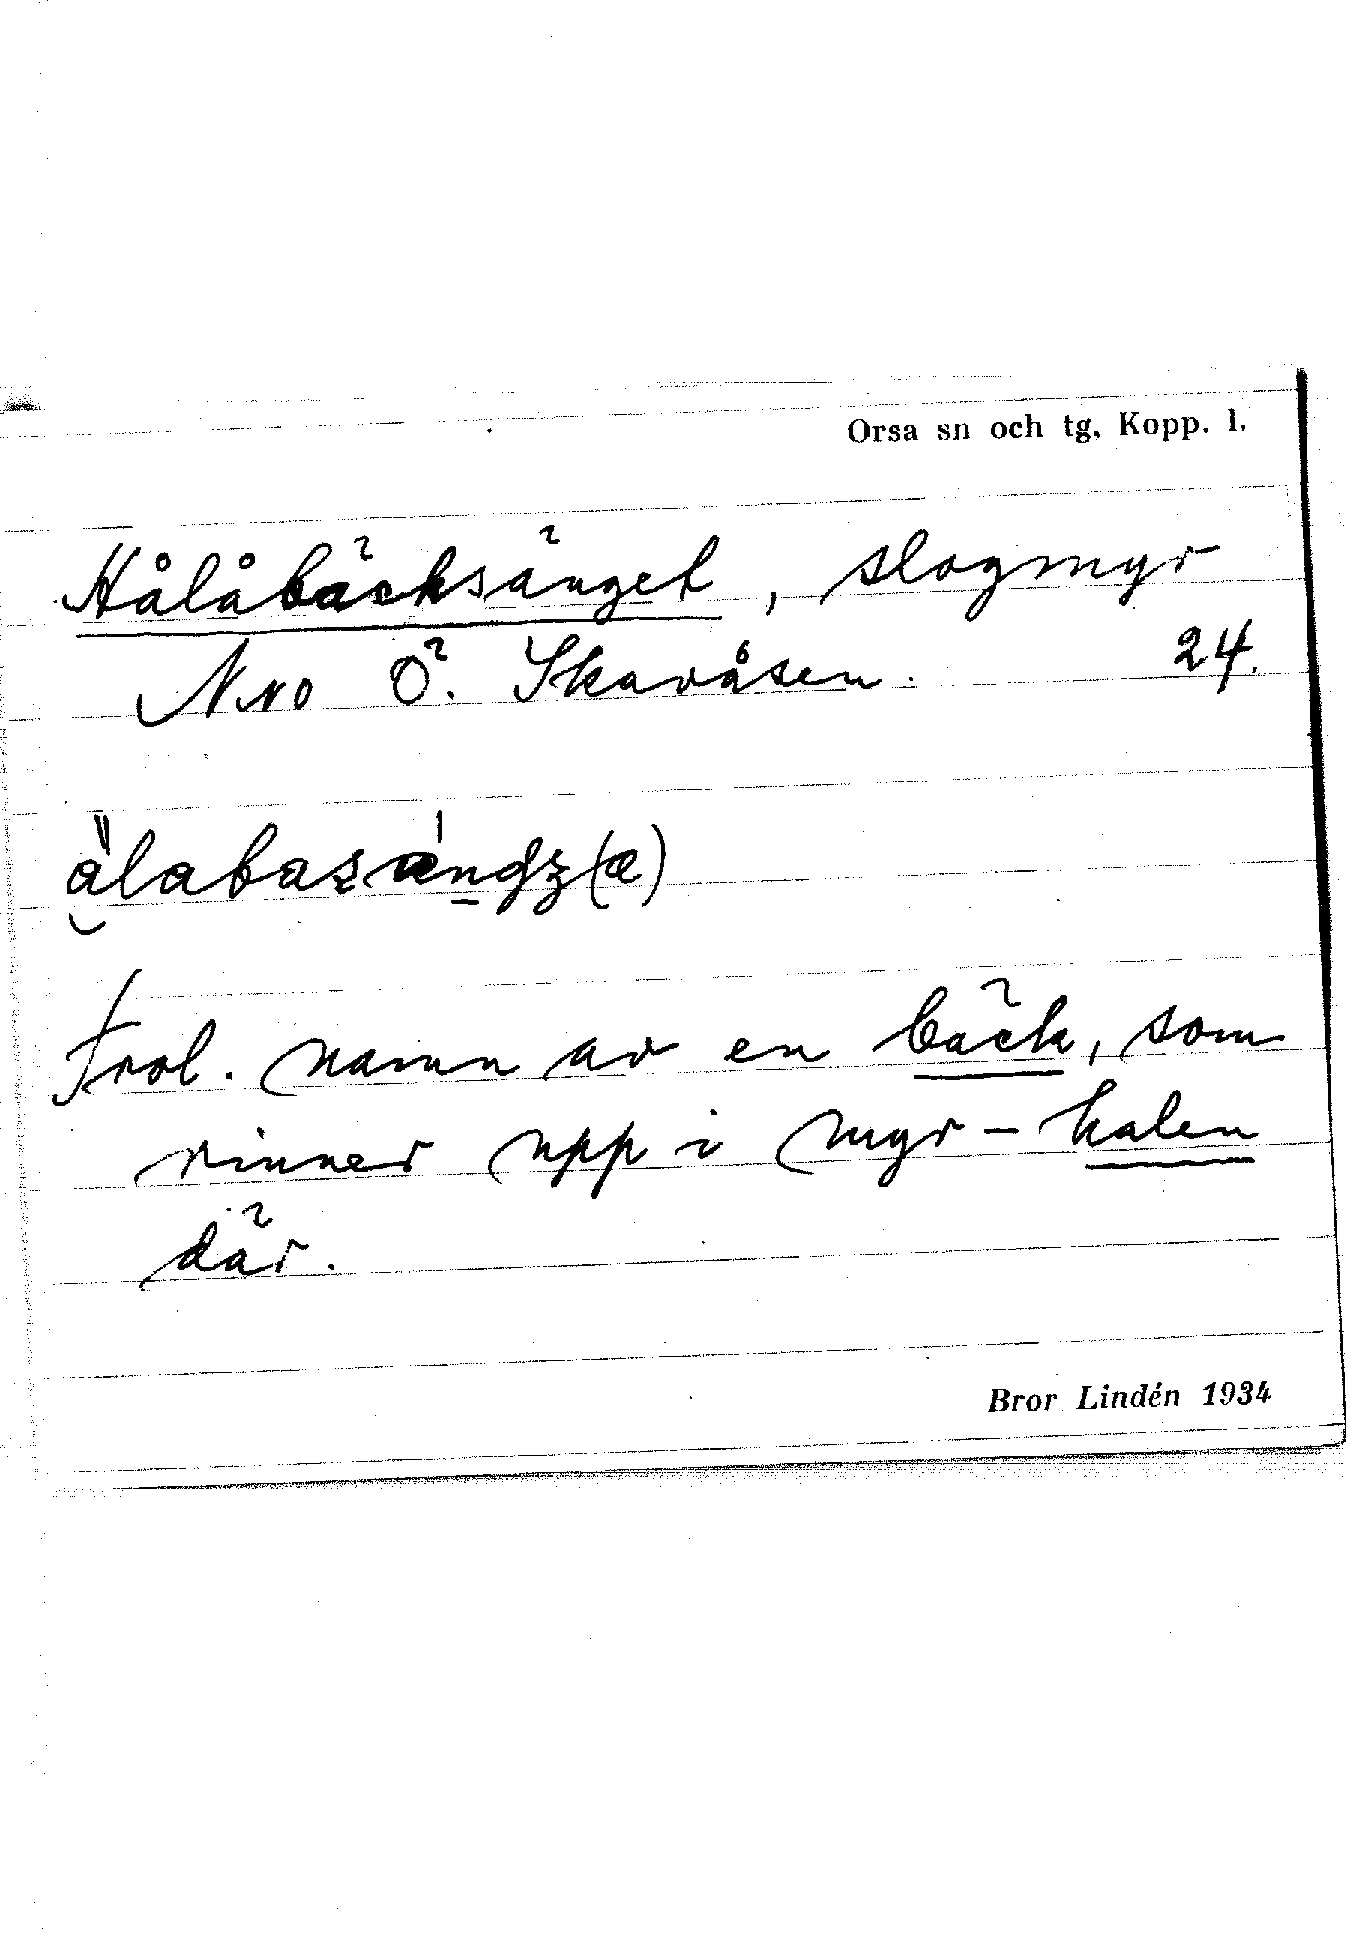 Orsa sn och tg, Kopp. l.
Hålåbäcksänget, slogmyr
Nno Ö. Skavåsen. 24.
Trol. namn av en bäck, som
rinner upp i myr-halen
där.
Bror Lindén 1934